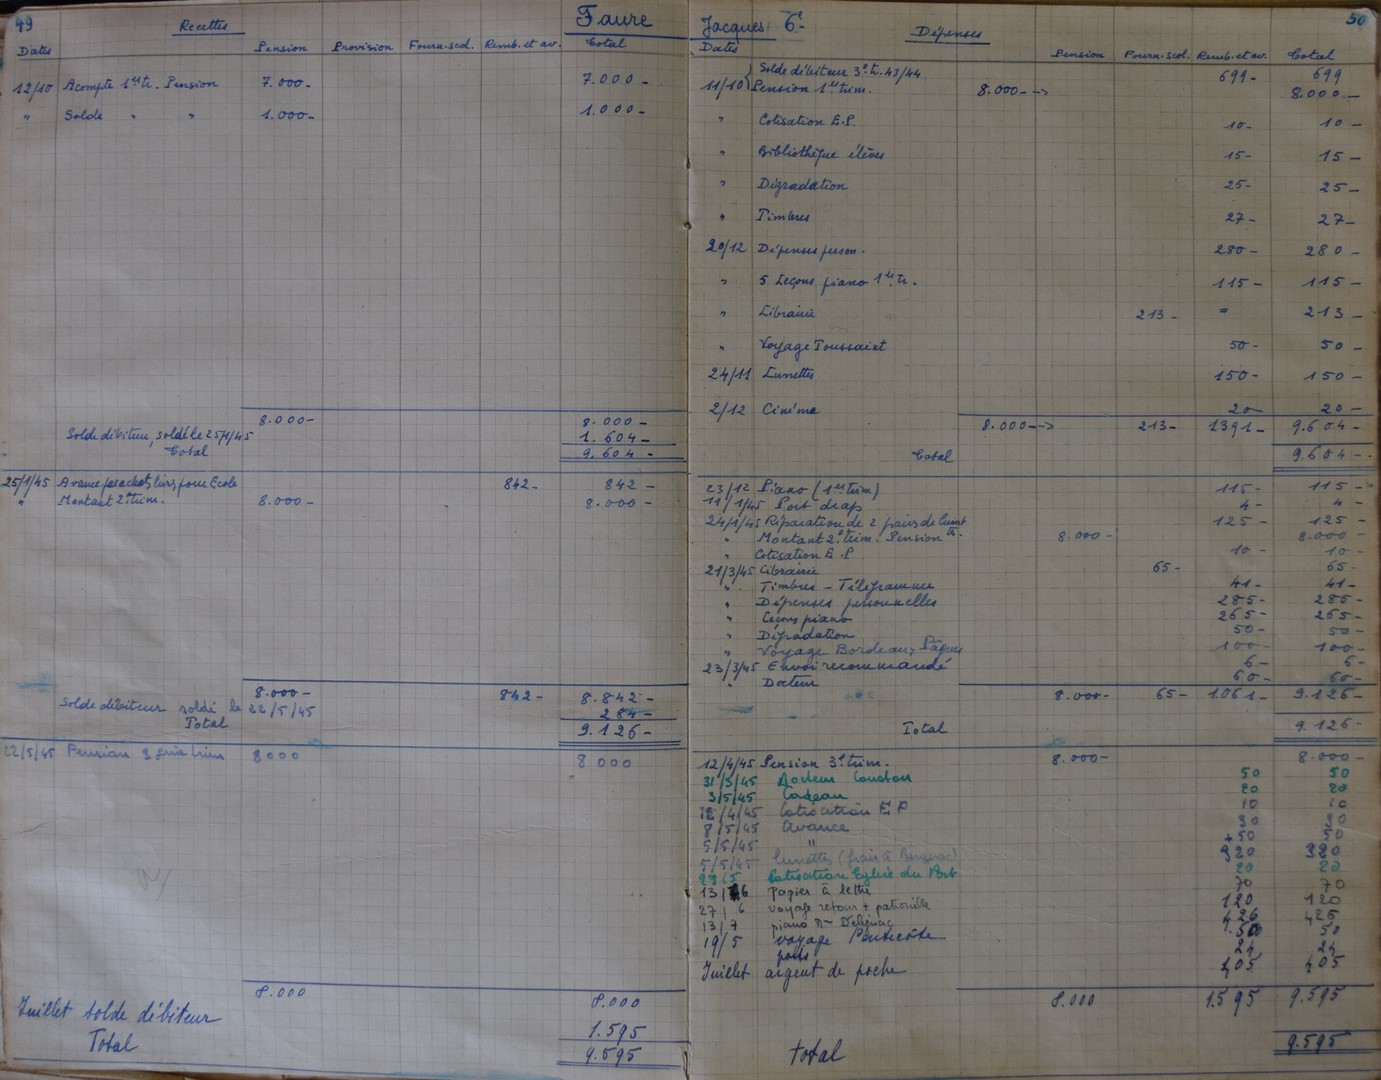 49
Recettes
Faure
Dates Pension Provision Fourn. scol. Remb. et av. Total
12/10 Acompte 1er tr. Pension 7.000- 7.000-
" Solde " " 1.000- 1.000-
8.000- 8.000-
Solde débiteur, soldé le 25/1/45 1.604-
Total 9.604-
25/1/45 Avance par achat livres pour Ecole 842- 842-
" Montant 2e trim. 8.000- 8.000-
8.000- 842- 8.842-
Solde débiteur soldé le 22/5/45 284-
Total 9.126-
22/5/45 Pension 3eme trim 8000 8000
8.000 8.000
Juillet solde débiteur 1.595
Total 9.595
Jacques 6e
50
Dépenses
Dates Pension Fourn. scol. Remb. et av. Total
Solde débiteur 3e tr. 43/44 699- 699
11/10 Pension 1er trim. 8.000- 8.000-
" Cotisation E.P. 10- 10-
" Bibliothèque élèves 15- 15-
" Dégradation 25- 25-
" Timbres 27- 27-
20/12 Dépenses person. 280- 280-
" 5 Leçons piano 1er tr. 115- 115-
" Librairie 213- " 213-
" Voyage Toussaint 50- 50-
24/11 Lunettes 150- 150-
2/12 Cinéma 20- 20-
8.000- 213- 1391- 9.604-
Total 9.604-
23/12 Piano (1er trim) 115- 115-
11/1/45 Port draps 4- 4-
24/1/45 Réparation de 2 paires de 125- 125-
" Montant 2e trim. Pension 8.000- 8.000-
" Cotisation E.P 10- 10-
21/3/45 Librairie 65- 65-
" Timbres - Télégramme 41- 41-
" Dépenses personnelles 285- 285-
" Leçons piano 265- 265-
" Dégradation 50- 50-
" Voyage Bordeaux Pâques 100- 100-
23/3/45 Envoi recommandé 6- 6-
" 60- 60-
8.000- 65- 1061- 9.126-
Total 9.126-
12/4/45 Pension 3e trim. 8.000- 8.000-
31/3/45 Docteur 50 50
3/5/45 Cadeau 20 20
12/4/45 Cotisation E P 10 10
8/5/45 Avance 30 30
5/5/45 " 50 50
5/5/45 Lunettes (frais à Bergerac) 320 320
29/5 Cotisation Eglise du Port 20 20
13/6 papier à lettre 70 70
27/6 voyage retour + 120 120
13/7 piano 426 426
19/5 voyage Pentecôte 50 50
24 24
Juillet argent de poche 405 405
8.000 1595 9.595
total 9.595